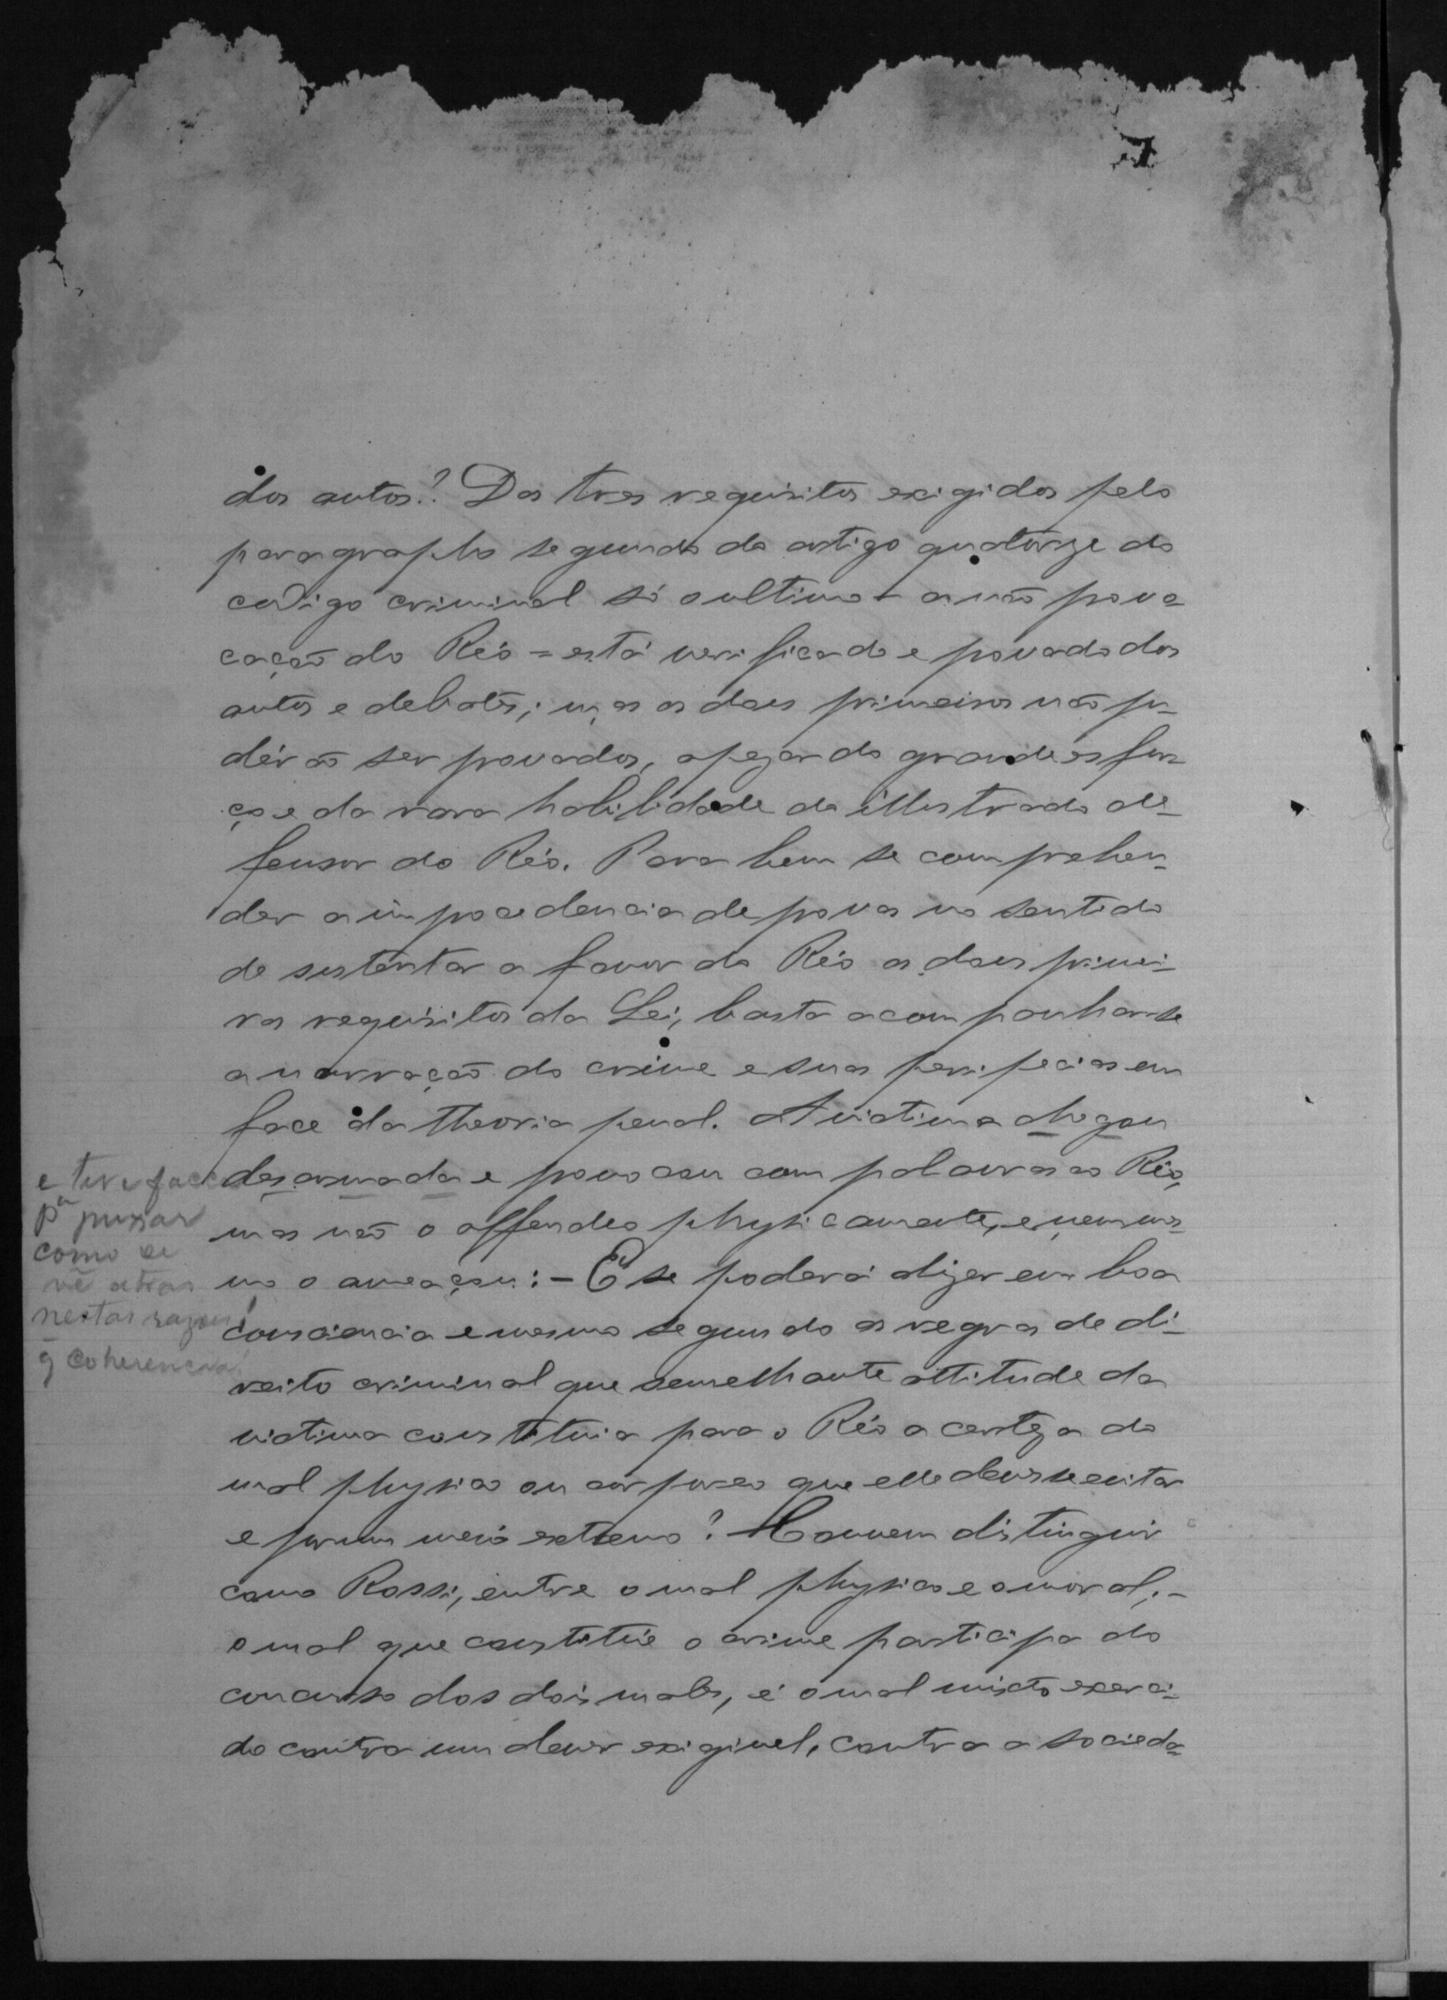 dos autos? Dos tres requisitos exigidos pelo
paragrapho segundo do artigo quatorze do
codigo criminal só o ultimo - a não provo-
cação do Réo = está verificado e provado dos
autos e debates; mas os dous primeiros não po-
dérão ser provados, apezar do grande esfor-
ço e da rara habilidade do illustrado de-
fensor do Réo. Para bem se comprehen-
der a improcedencia de provas no sentido
de sustentar a favor do Réo os dous primei-
ros requisitos da Lei, basta acompanhar-se
a narração do crime e suas peripecias em
face da theoria penal. A victima chegou
desarmada e provocou com palavras ao Réo,
mas não o offendeo physicamente, e nem mes-
mo o ameaçou: - E se poderá dizer em boa
consciencia e mesmo segundo as regras de di-
reito criminal que semelhante attitude da
victima constituia para o Réo a certeza do
mal physico ou corporeo que elle devesse evitar
e por um meio extremo? Convem distinguir
como Rossi, entre o mal physico e o moral; -
o mal que constitúe o crime participa do
concurso dos dois males, é o mal mixto exerci-
do contra um dever exigivel, contra a socieda-
e teve faca
pª puxar
como se
vê atras
nestas razões!
q coherencia!